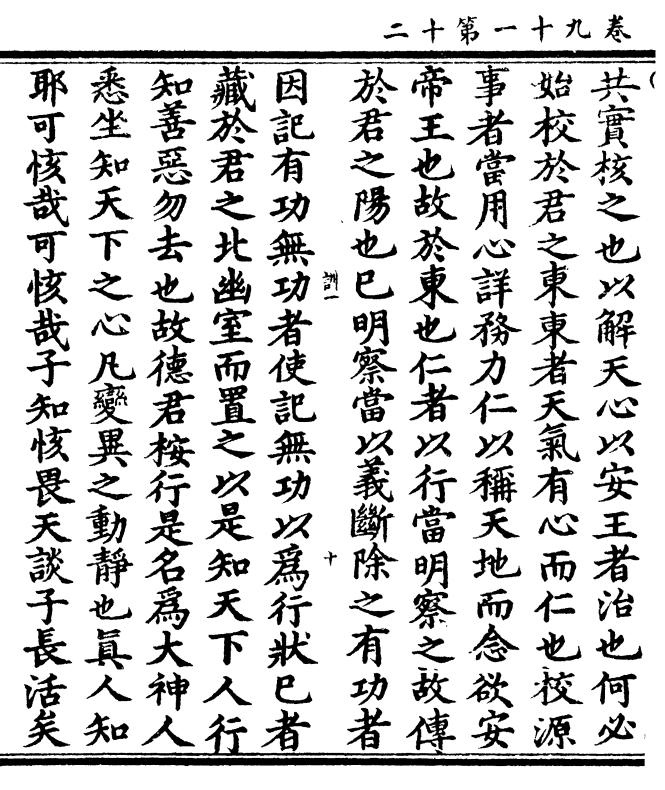 卷九十一第十二
共實核之也以解天心以安王者治也何必
始校於君之東東者天氣有心而仁也校源
事者當用心詳務力仁以稱天地而念欲安
帝王也故於東也仁者以行當明察之故傳
於君之陽也巳明察當以義斷除之有功者
訓一 十
因記有功無功者使記無功以爲行狀巳者
藏於君之北幽室而置之以是知天下人行
知善惡勿去也故德君桉行是名爲大神人
悉坐知天下之心凡變異之動靜也眞人知
耶可㤥哉可㤥哉子知㤥畏天談子長活矣